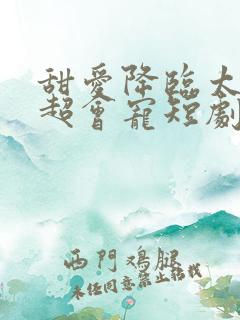 甜愛降臨太
超會寵短劇
西門鴻腿
未經同意禁止轉載